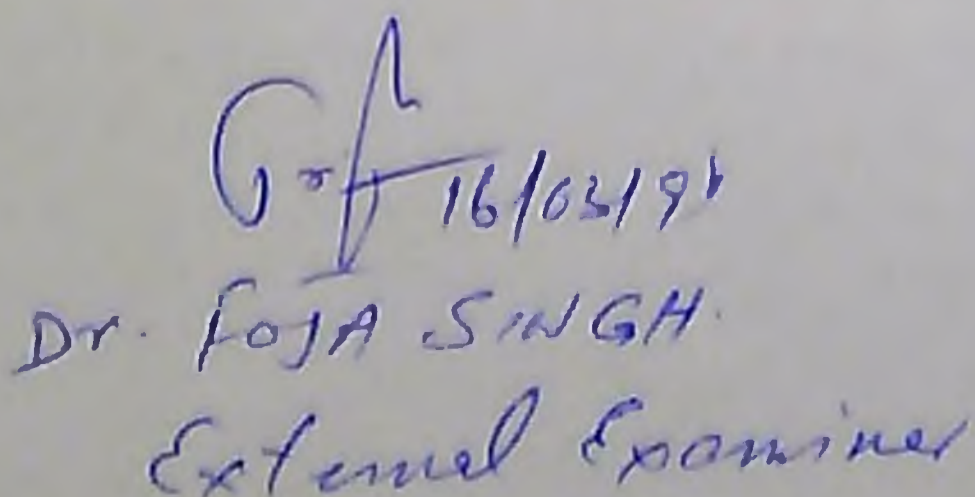 16/03/98
Dr. FOJA SINGH.
External Examiner